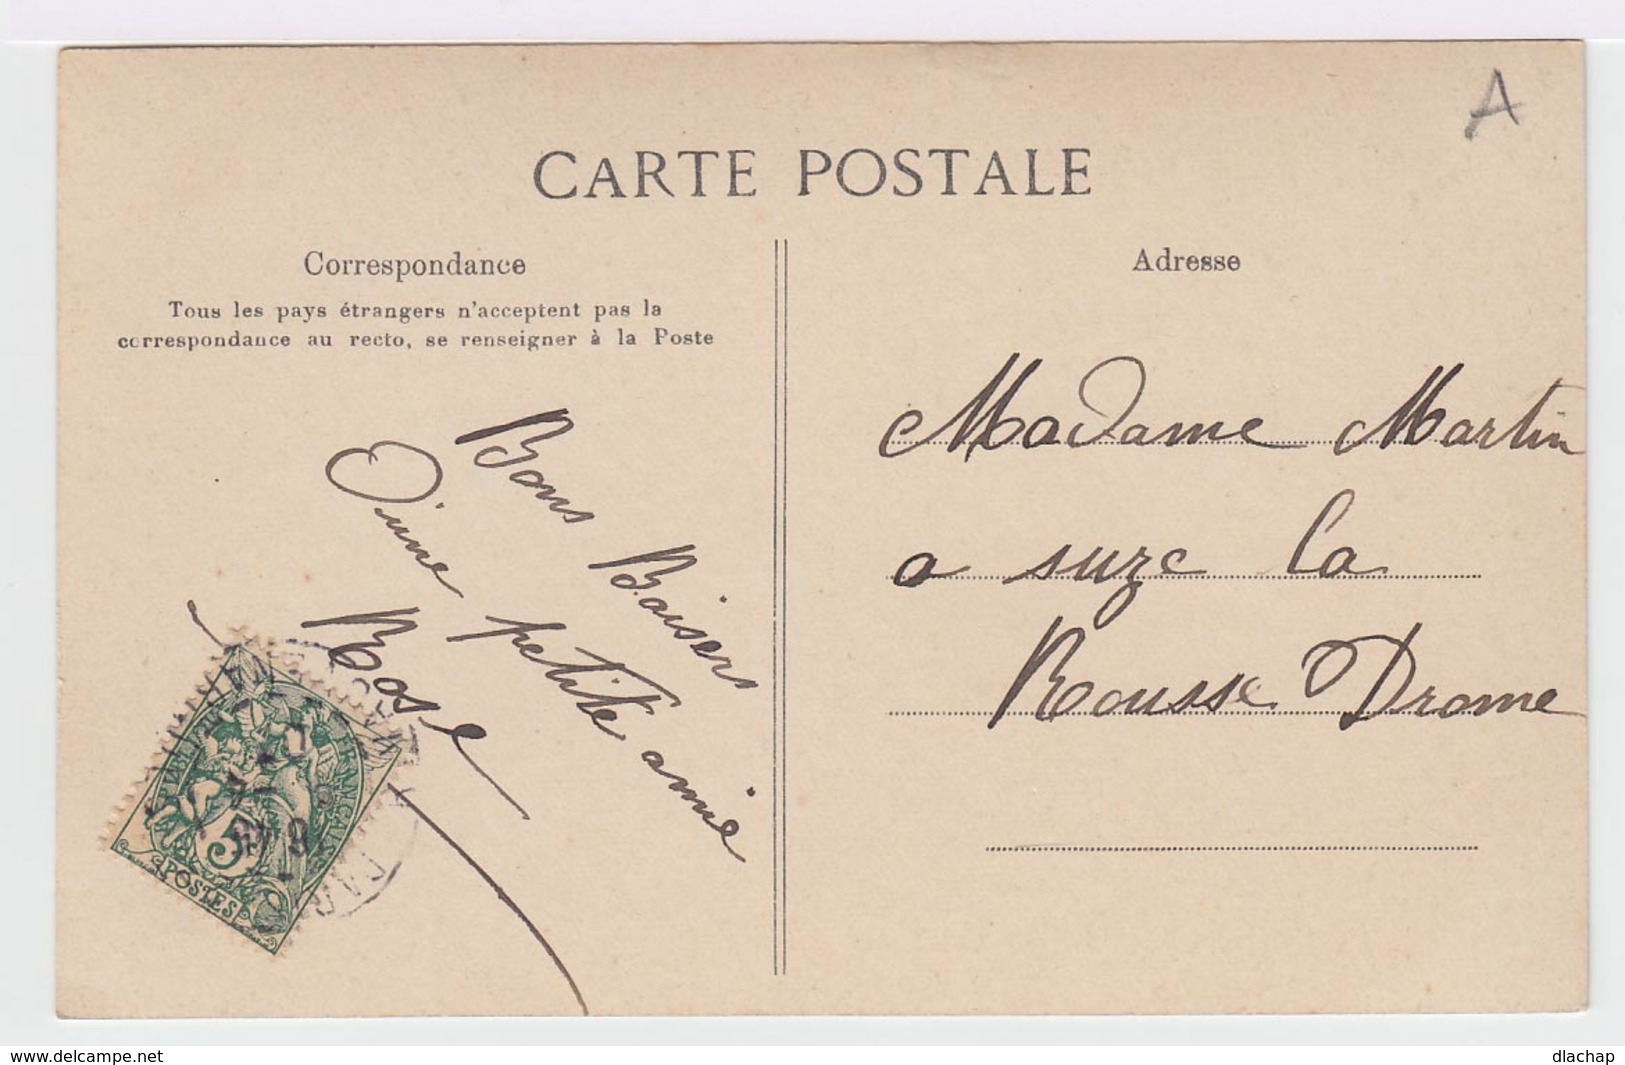 A
CARTE POSTALE
Correspondance
Tous les pays étrangers n'acceptent pas la
correspondance au recto, se renseigner à la Poste
Bons Baisers
D'une petite amie
Rose
POSTES
5
Adresse
Madame Martin
a suze la
Rousse Drome
www.delcampe.net
dlachap